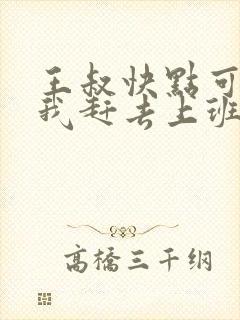 王叔快點可
我赶去上班
高橋三千纲